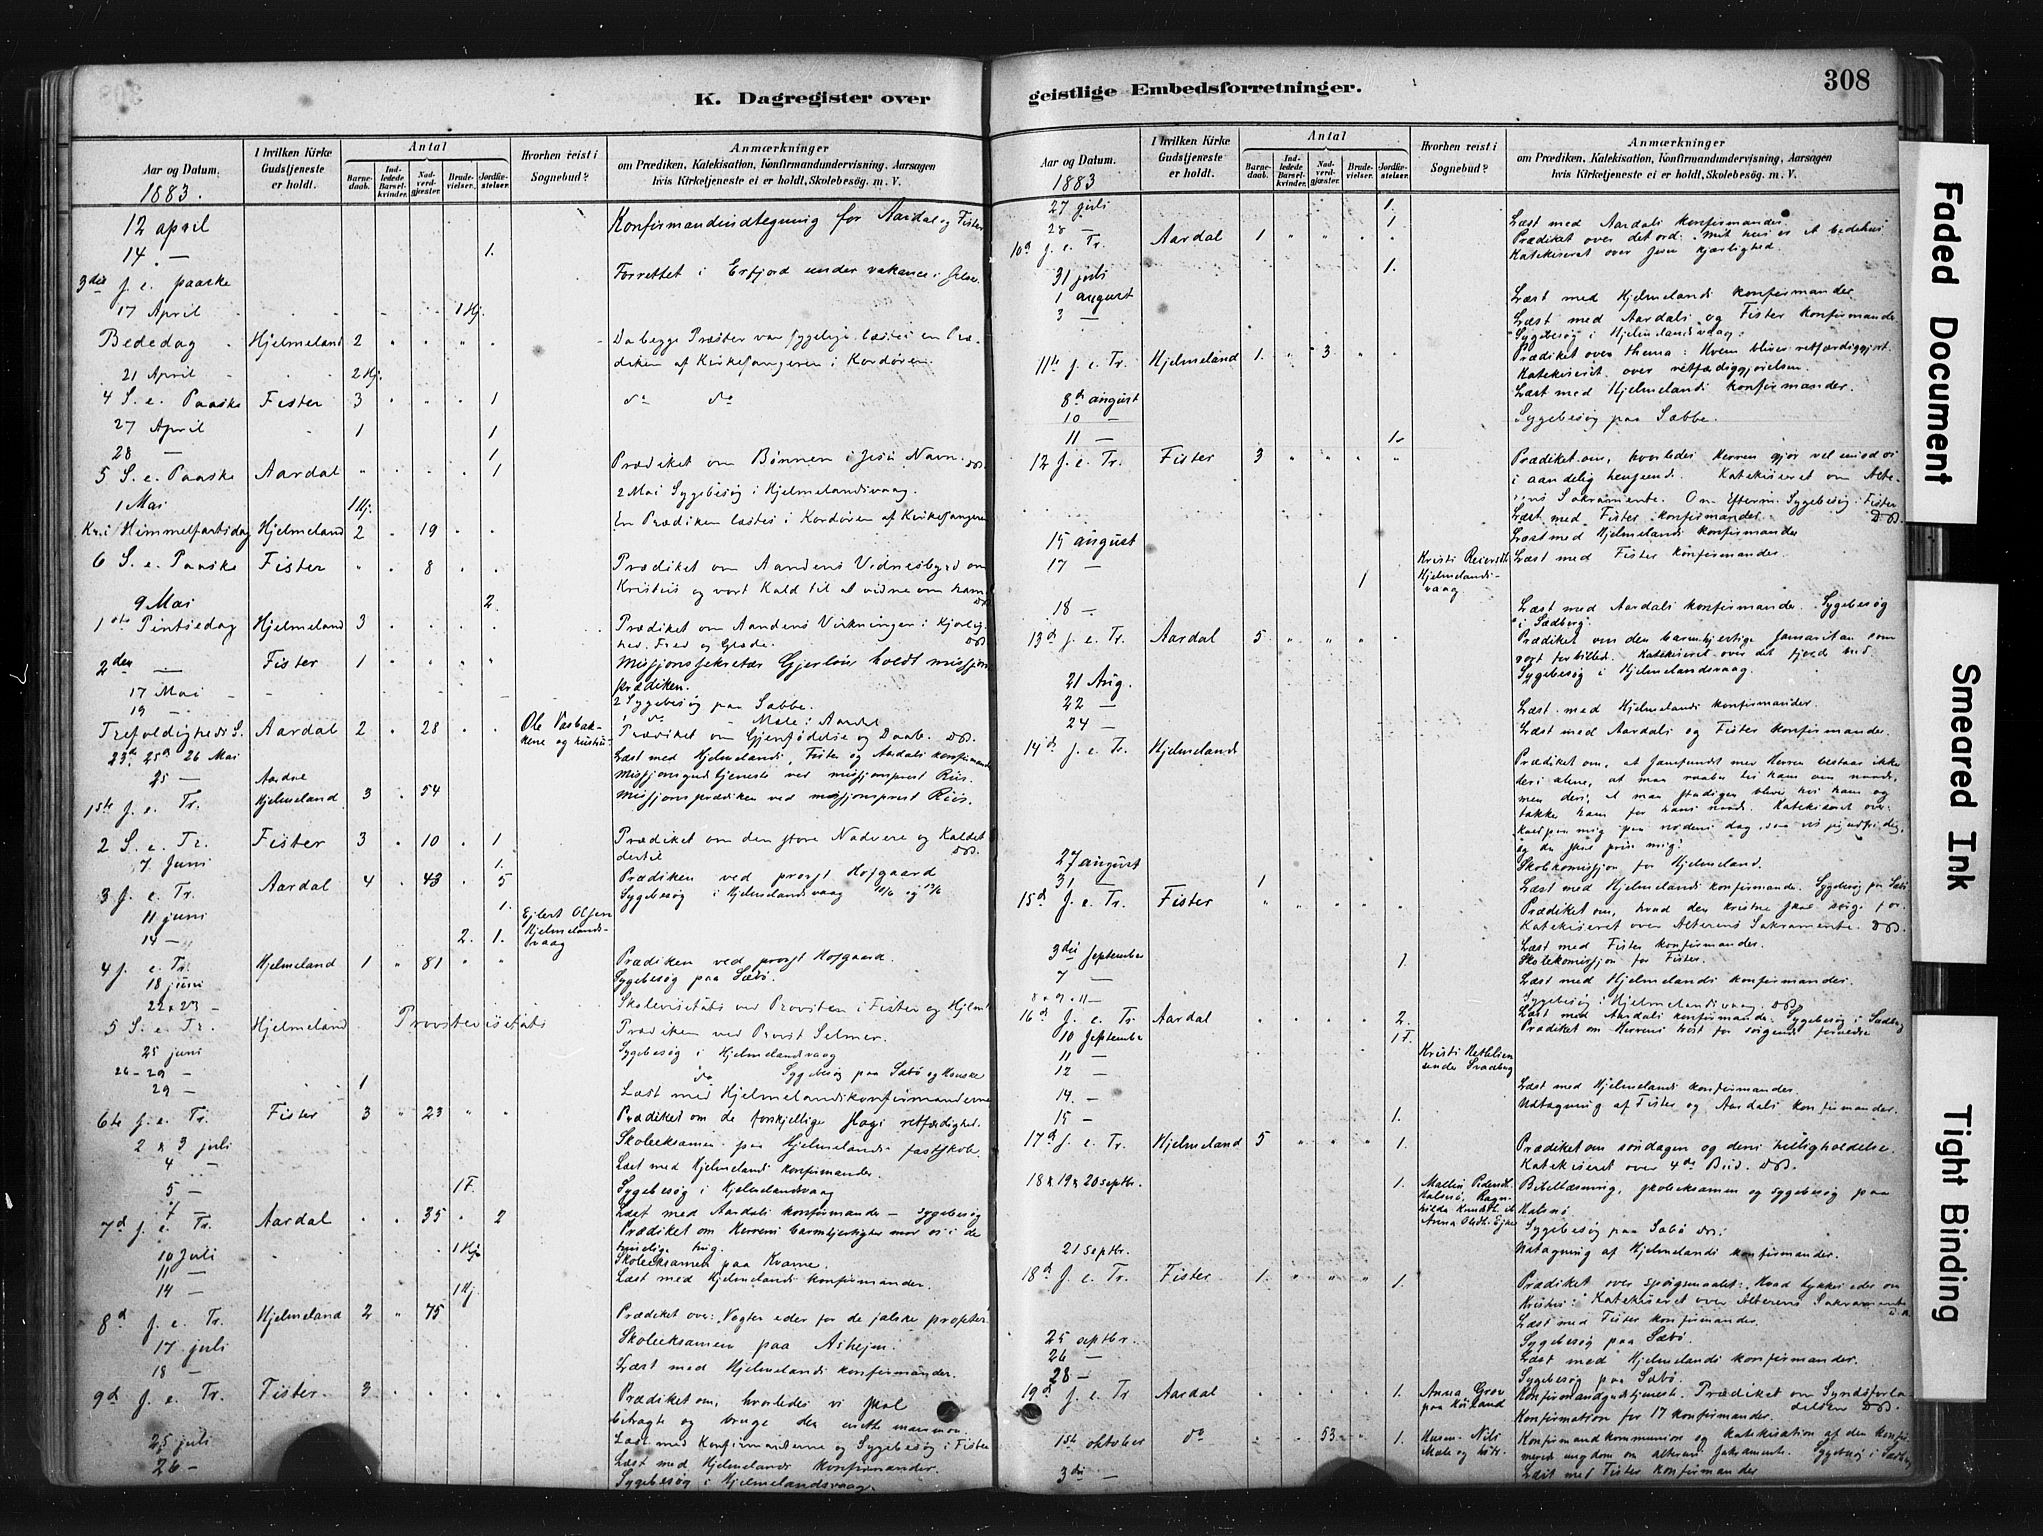 K. Dagregister over
geistlige Embedsforretninger.
308
Aar og Datum.
1883.
I hvilken Kirke Gudstjeneste er holdt.
Antal
Barnedaab.
Indledede Barselkvinder.
Nadverdgjæster.
Brudevielser.
Jordfæstelser.
Hvorhen reist i Sognebud?
Anmærkninger
om Prædiken, Katekisation, Konfirmandundervisning, Aarsagen
hvis Kirketjeneste ei er holdt, Skolebesøg. m. V.
12 april Konfirmandindtegning for Aardal og Fister
14. — 1.
3die s. e. paaske Forrettet i Erfjord under vakance i Jelse
17 April 1 Hj.
Bededag Hjelmeland 2 Da begge Præster var sygelige læstes en Præ-
diken af Kirkesangeren i Kordøren
21 April 2 Hj.
4 S. e. Paaske Fister 3 1 do do
27 April 1 1
28 — 1
5 S. e. Paaske Aardal 1 Prædiket om Bønnen i Jesu Navn.
1 Mai 1 Hj. 2 Mai Sygebesøg i Hjelmelandsvaag.
Kristi Himmelfartsdag Hjelmeland 2 19 En Prædiken læstes i Kordøren af Kirkesangeren
6 S. e. Paaske Fister 8 Prædiket om Aandens Vidnesbyrd om
Kristus og vort Kald til at vidne om ham
9 Mai 2.
1ste Pintsedag Hjelmeland 3 Prædiket om Aandens Virkninger: Kjærlig-
hed, Fred og Glæde.
2den — Fister 1 Missjonssekretær Gjerløw holdt missjons
prædiken.
17 Mai 2 Sygebesøg paa Sabbe.
19 — 1 do — Mæle i Aardal
Trefoldigheds S. Aardal 2 28 Ole Vasbak-
kene og hustru Prædiket om Gjenfødelse og Daab.
23de 25de 26 Mai Læst med Hjelmelands, Fister og Aardals konfirmander
25 — Aardal Missjonsgudstjeneste ved missjonsprest Riis.
1ste s. e. Tr. Hjelmeland 3 54 Missjonsprædiken ved missjonsprest Riis.
2 S. e. Tr. Fister 3 10 1 Prædiket om den store Nadvere og Kaldet
dertil
7 Juni 1.
3 s. e. Tr. Aardal 4 43 5 Prædiken ved provst Hofgaard
Sygebesøg i Hjelmelandsvaag
11 juni 1.
14 — 2. 1. Ejlert Olsen
Hjelmelands-
vaag
4 s. e. Tr. Hjelmeland 1 81 Prædiken ved provst Hofgaard.
18 juni Sygebesøg paa Sæbø.
22 & 23 — Skolevisitats ved Provsten i Fister og Hjelml
5 S. e. Tr. Hjelmeland Provstevisitats Prædiken ved Provst Selmer.
25 juni Sygebesøg i Hjelmelandsvaag
26-29 — do Sygebesøg paa Sæbø og
29 — 1 Læst med Hjelmelandskonfirmanderne
6te s. e. Tr. Fister 3 23 Prædiket om de forskjellige slags retfærdighed.
2 & 3 juli Skoleeksamen paa Hjelmelands fastskole
4 — Læst med Hjelmelands konfirmander.
5 — 1 F. Sygebesøg i Hjelmelandsvaag
7 — Læst med Aardals konfirmander — sygebesøg
7de s. e. Tr. Aardal 35 2 Prædiket om Herrens barmhjertighed mod os i de
timelige ting.
10 Juli 1 Hj. Skoleeksamen paa Kvame.
11 — Læst med Hjelmelands konfirmander.
14 — 1 Hj.
8de s. e. Tr. Hjelmeland 2 75 Prædiket over: Vogter eder for de falske profeter
17 juli Skoleeksamen paa Askejen.
18 — Læst med Hjelmelands konfirmander.
9de s. e. Tr. Fister. 3 Prædiket om, hvorledes vi skal
betragte og bruge den urette mammon.
25 juli Læst med Konfirmanderne og Sygebesøg i Fister
26 — Læst med Hjelmelands konfirmander.
Sygebesøg i Hjelmelandsvaag.
Aar og Datum.
1883
I hvilken Kirke Gudstjeneste er holdt.
Antal
Barnedaab.
Indledede Barselkvinder.
Nadverdgjæster.
Brudevielser.
Jordfæstelser.
Hvorhen reist i Sognebud?
Anmærkninger
om Prædiken, Katekisation, Konfirmandundervisning, Aarsagen
hvis Kirketjeneste ei er holdt, Skolebesøg. m. V.
27 juli 1.
28 — 1 Læst med Aardals konfirmander
10de s. e. Tr. Aardal 1 Prædiket over det ord: Mit hus er et bedehus
Katekiseret over Jesu kjærlighed.
31 juli 1.
1 august Læst med Hjelmelands konfirmander
3 — Læst med Aardals og Fister konfirmander
Sygebesøg i Hjelmelandsvaag.
11te s. e. Tr. Hjelmeland 1. 3 Prædiket over thema: Hvem bliver retfærdiggjort.
Katekiseret over retfærdiggjørelsen.
8de august Læst med Hjelmelands konfirmander.
10 — Sygebesøg paa Sabbe.
11 — 1.
12 s. e. Tr. Fister 3 Prædiket om, hvorledes Herren gjør vel imod os
i aandelig henseende. Katekiseret om Alte-
rens Sakramente. Om Efterm. Sygebesøg i Fister
Læst med Fister konfirmander
15 august Læst med Hjelmelands konfirmander
17 — 1 Kristi Reiersdt.
Hjelmelands-
vaag Læst med Fister konfirmander.
18 — Læst med Aardals konfirmander. Sygebesøg
i Sedberg.
13de s. e. Tr. Aardal 5 Prædiket om den barmhjertige samaritan som
vort forbillede. Katekiseret over det fjerde bud.
Sygebesøg i Hjelmelandsvaag.
21 Aug.
22 — Læst med Hjelmelands konfirmander.
24 — Læst med Aardals og Fister konfirmander.
14de s. e. Tr. Hjelmeland Prædiket om, at samfundet med Herren bestaar ikke
deri alene, at man raaber til ham om naade,
men deri, at man stadigen bliver hos ham og
takke ham for hans naade. Katekiseret over:
Kald paa mig paa nødens dag, saa vil jeg udfri dig,
og du skal prise mig.
27 august Skolekomission for Hjelmeland.
31 — 1 Læst med Hjelmelands konfirmander. Sygebesøg paa Sæbø
15de s. e. Tr. Fister Prædiket om, hvad den kristne skal sørge for.
Katekiseret over Alterens Sakramente.
Læst med Fister konfirmander.
3die september Skolekomissjon for Fister.
7 — 1. Læst med Hjelmelands konfirmander.
8 & 9 & 11 — Sygebesøg i Hjelmelandsvaag.
Læst med Aardals konfirmander. Sygebesøg i Sedberg
16de s. e. Tr. Aardal 2. Prædiket om Herrens trøst for sørgende forældre
10 September 1 F.
11 — Kristi
Svadberg
12 — Læst med Hjelmelands konfirmander.
14 — Udtagning af Fister og Aardals konfirmander.
15 — 1.
17de s. e. Tr. Hjelmeland 5 1. Prædiket om søndagen og dens helligholdelse.
Katekiseret over 4de Bud.
18 & 19 & 20 septbr. 1. Mallin Pedersdt.
Halsnø, Ragn-
hilda Knudsdt. ib.
Anna Olsdt. Bibellæsning, skoleeksamen og sygebesøg paa
Halsnø
Sygebesøg paa Sæbø
21 septbr. Udtagning af Hjelmelands konfirmander.
18de s. e. Tr. Fister 1. 1. Prædiket over spørgsmaalet: Hvad tykkes eder om
Kristus? Katekiseret over Alterens Sakramente
Læst med Fister konfirmander.
25 septbr. Sygebesøg paa Sæbø.
26 — Læst med Hjelmelands konfirmander.
28 — Sygebesøg paa Sæbø.
19de s. e. Tr. Aardal 1. Anna Grov
paa Konfirmandgudstjeneste. Prædiket om Syndsforla-
delsen
Konfirmation for 17 konfirmander.
1ste oktober do 53. 1. Husm. Nils
Mæle og hustr. Konfirmandkommunion og Katekisation af den konfir-
merede ungdom om alterens sakrament. Sygebesøg i Sedberg
3die — Læst med Fister konfirmander
Faded Document
Smeared Ink
Tight Binding